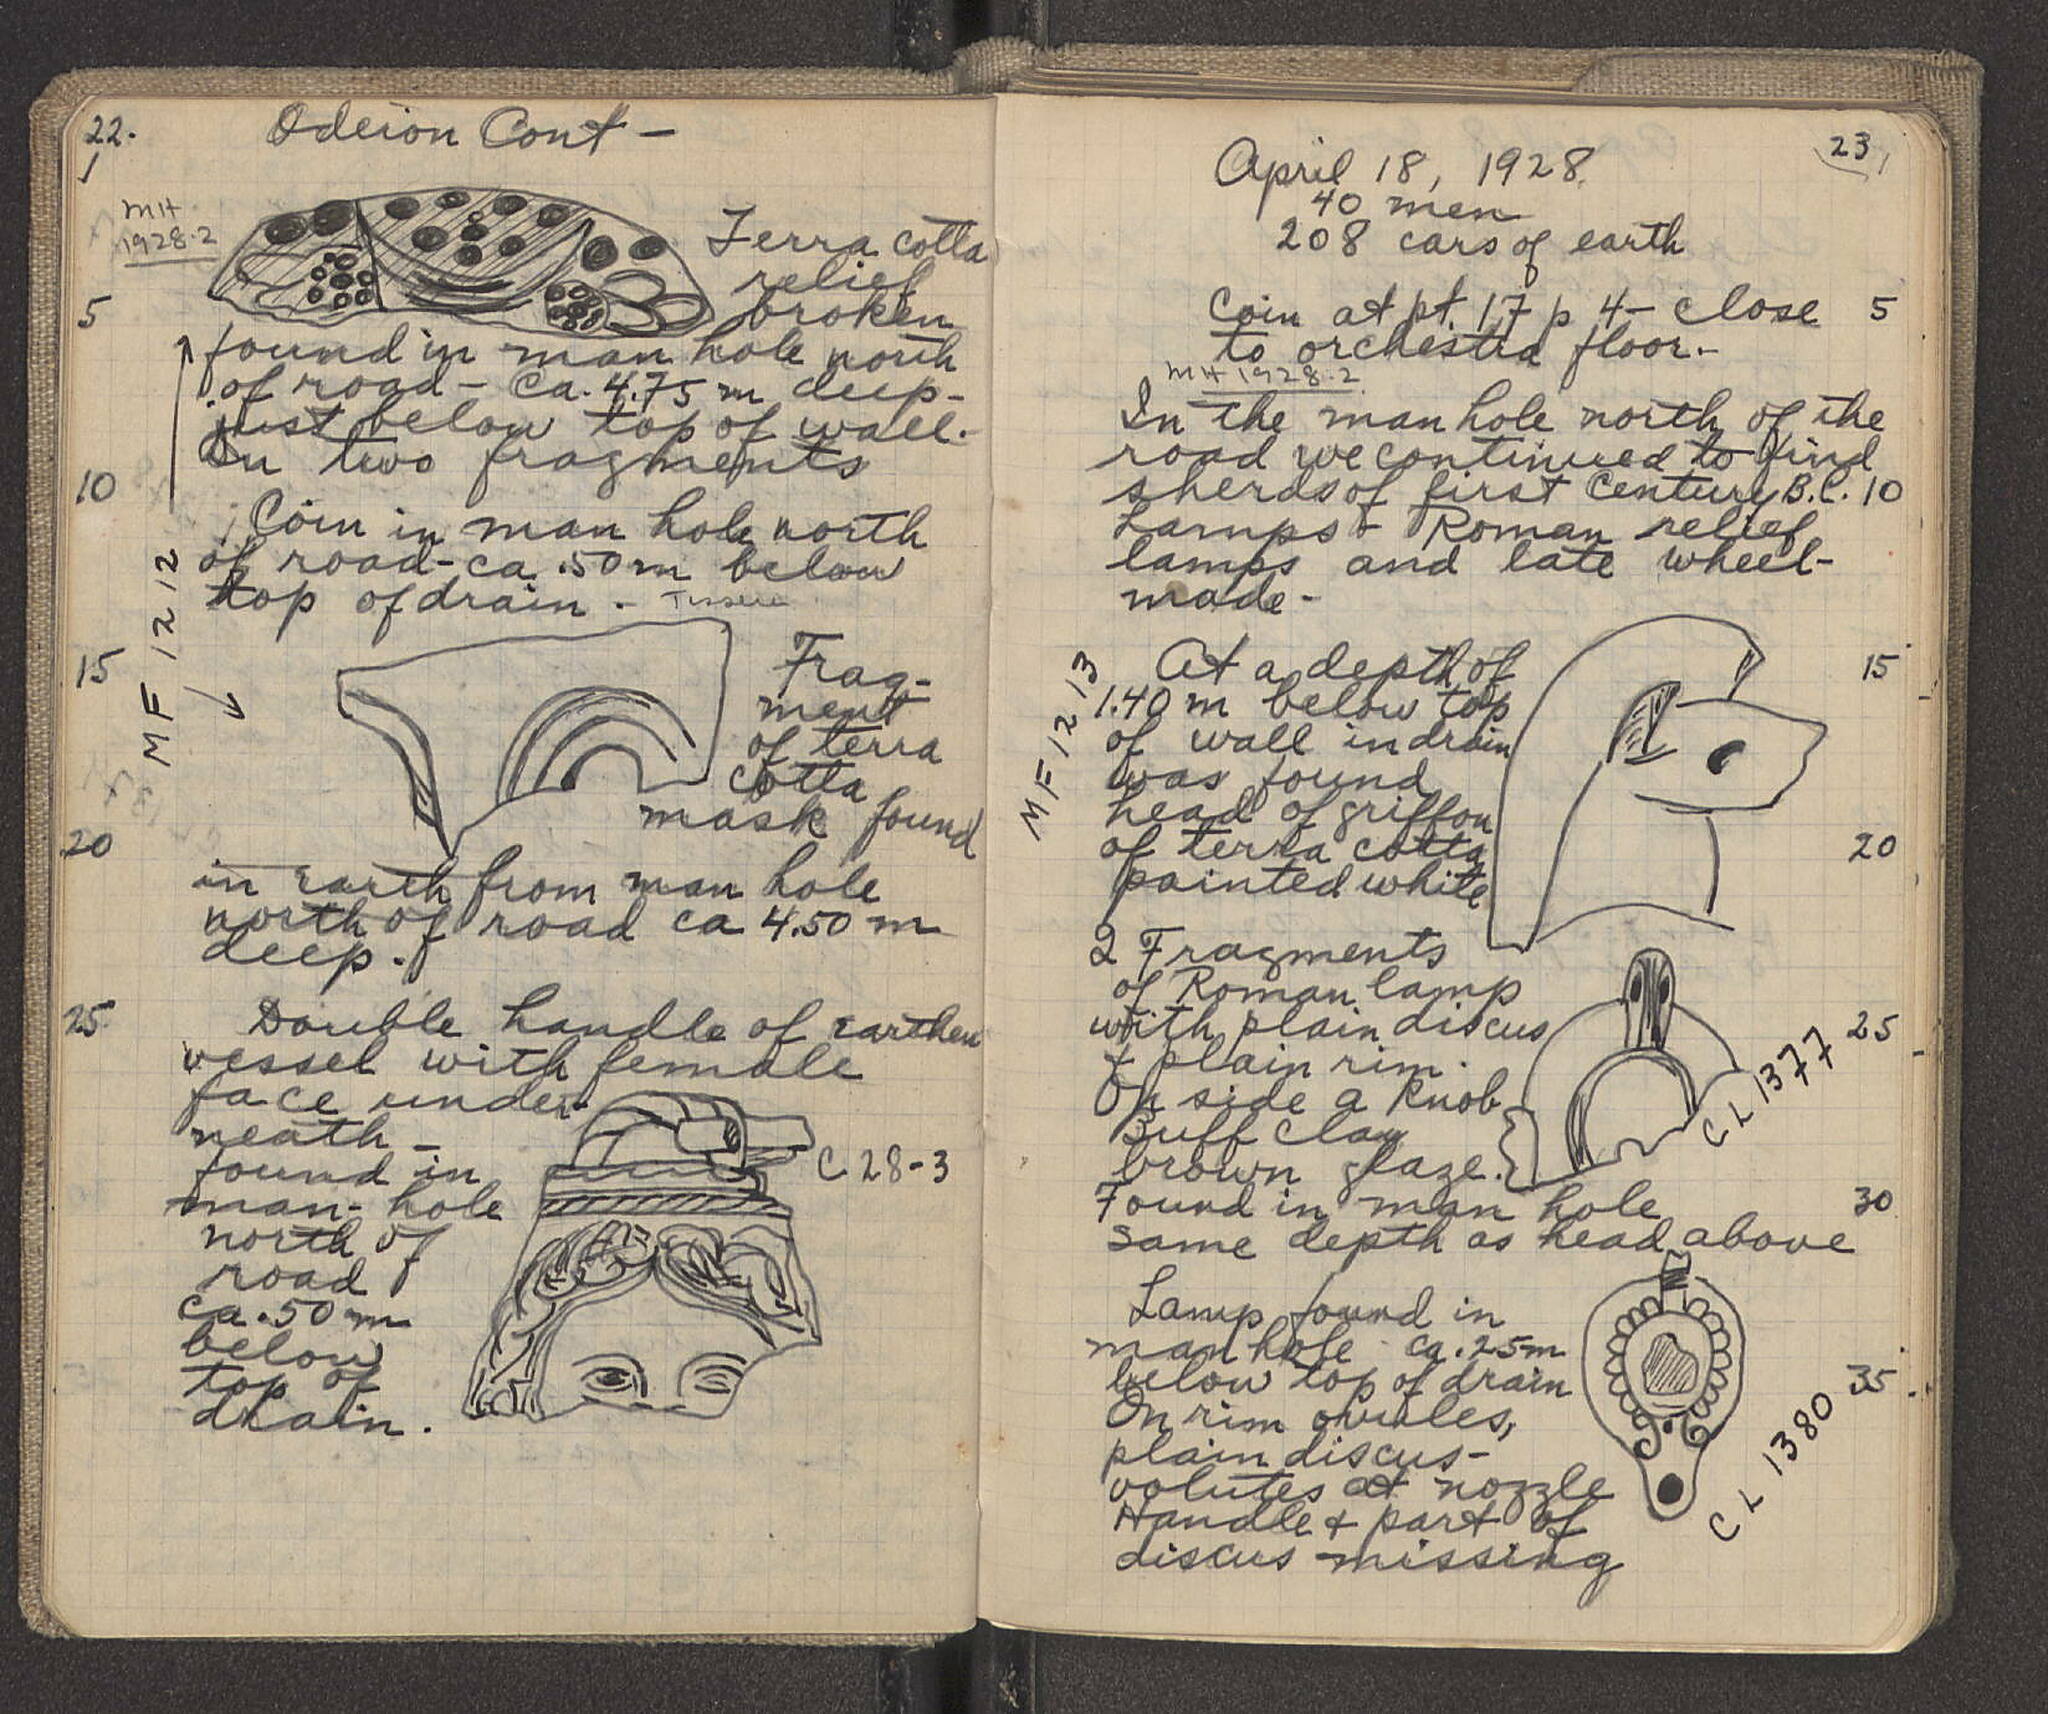 22.
Odeion Cont -
1
MH
1928.2
Terra cotta
relief
broken
5
found in man hole north
of road - ca. 4.75 m deep -
just below top of wall.
In two fragments
10
Coin in man hole north
of road - ca .50 m below
top of drain - Tessera
MF 1212
15
Frag-
ment
of terra
cotta
mask found
20
in earth from man hole
north of road ca 4.50 m
deep.
25
Double handle of earthen
vessel with female
face under-
neath -
found in
man-hole
north of
road
ca .50 m
below
top of
drain.
C 28-3
23
April 18, 1928
40 men
208 cars of earth
Coin at pt. 17 p 4 - close 5
to orchestra floor -
MH 1928.2
In the man hole north of the
road we continued to find
sherds of first century B.C. 10
Lamps & Roman relief
lamps and late wheel-
made -
MF 1213
At a depth of 15
1.40 m below top
of wall in drain
was found
head of griffon
of terra cotta 20
painted white
2 Fragments
of Roman lamp
with plain discus 25
& plain rim.
On side a knob
Buff clay
brown glaze.
CL 1377
Found in man hole 30
same depth as head above
Lamp found in
man hole ca .25m
below top of drain 35
On rim ovules,
plain discus -
volutes at nozzle
Handle & part of
discus missing
CL 1380